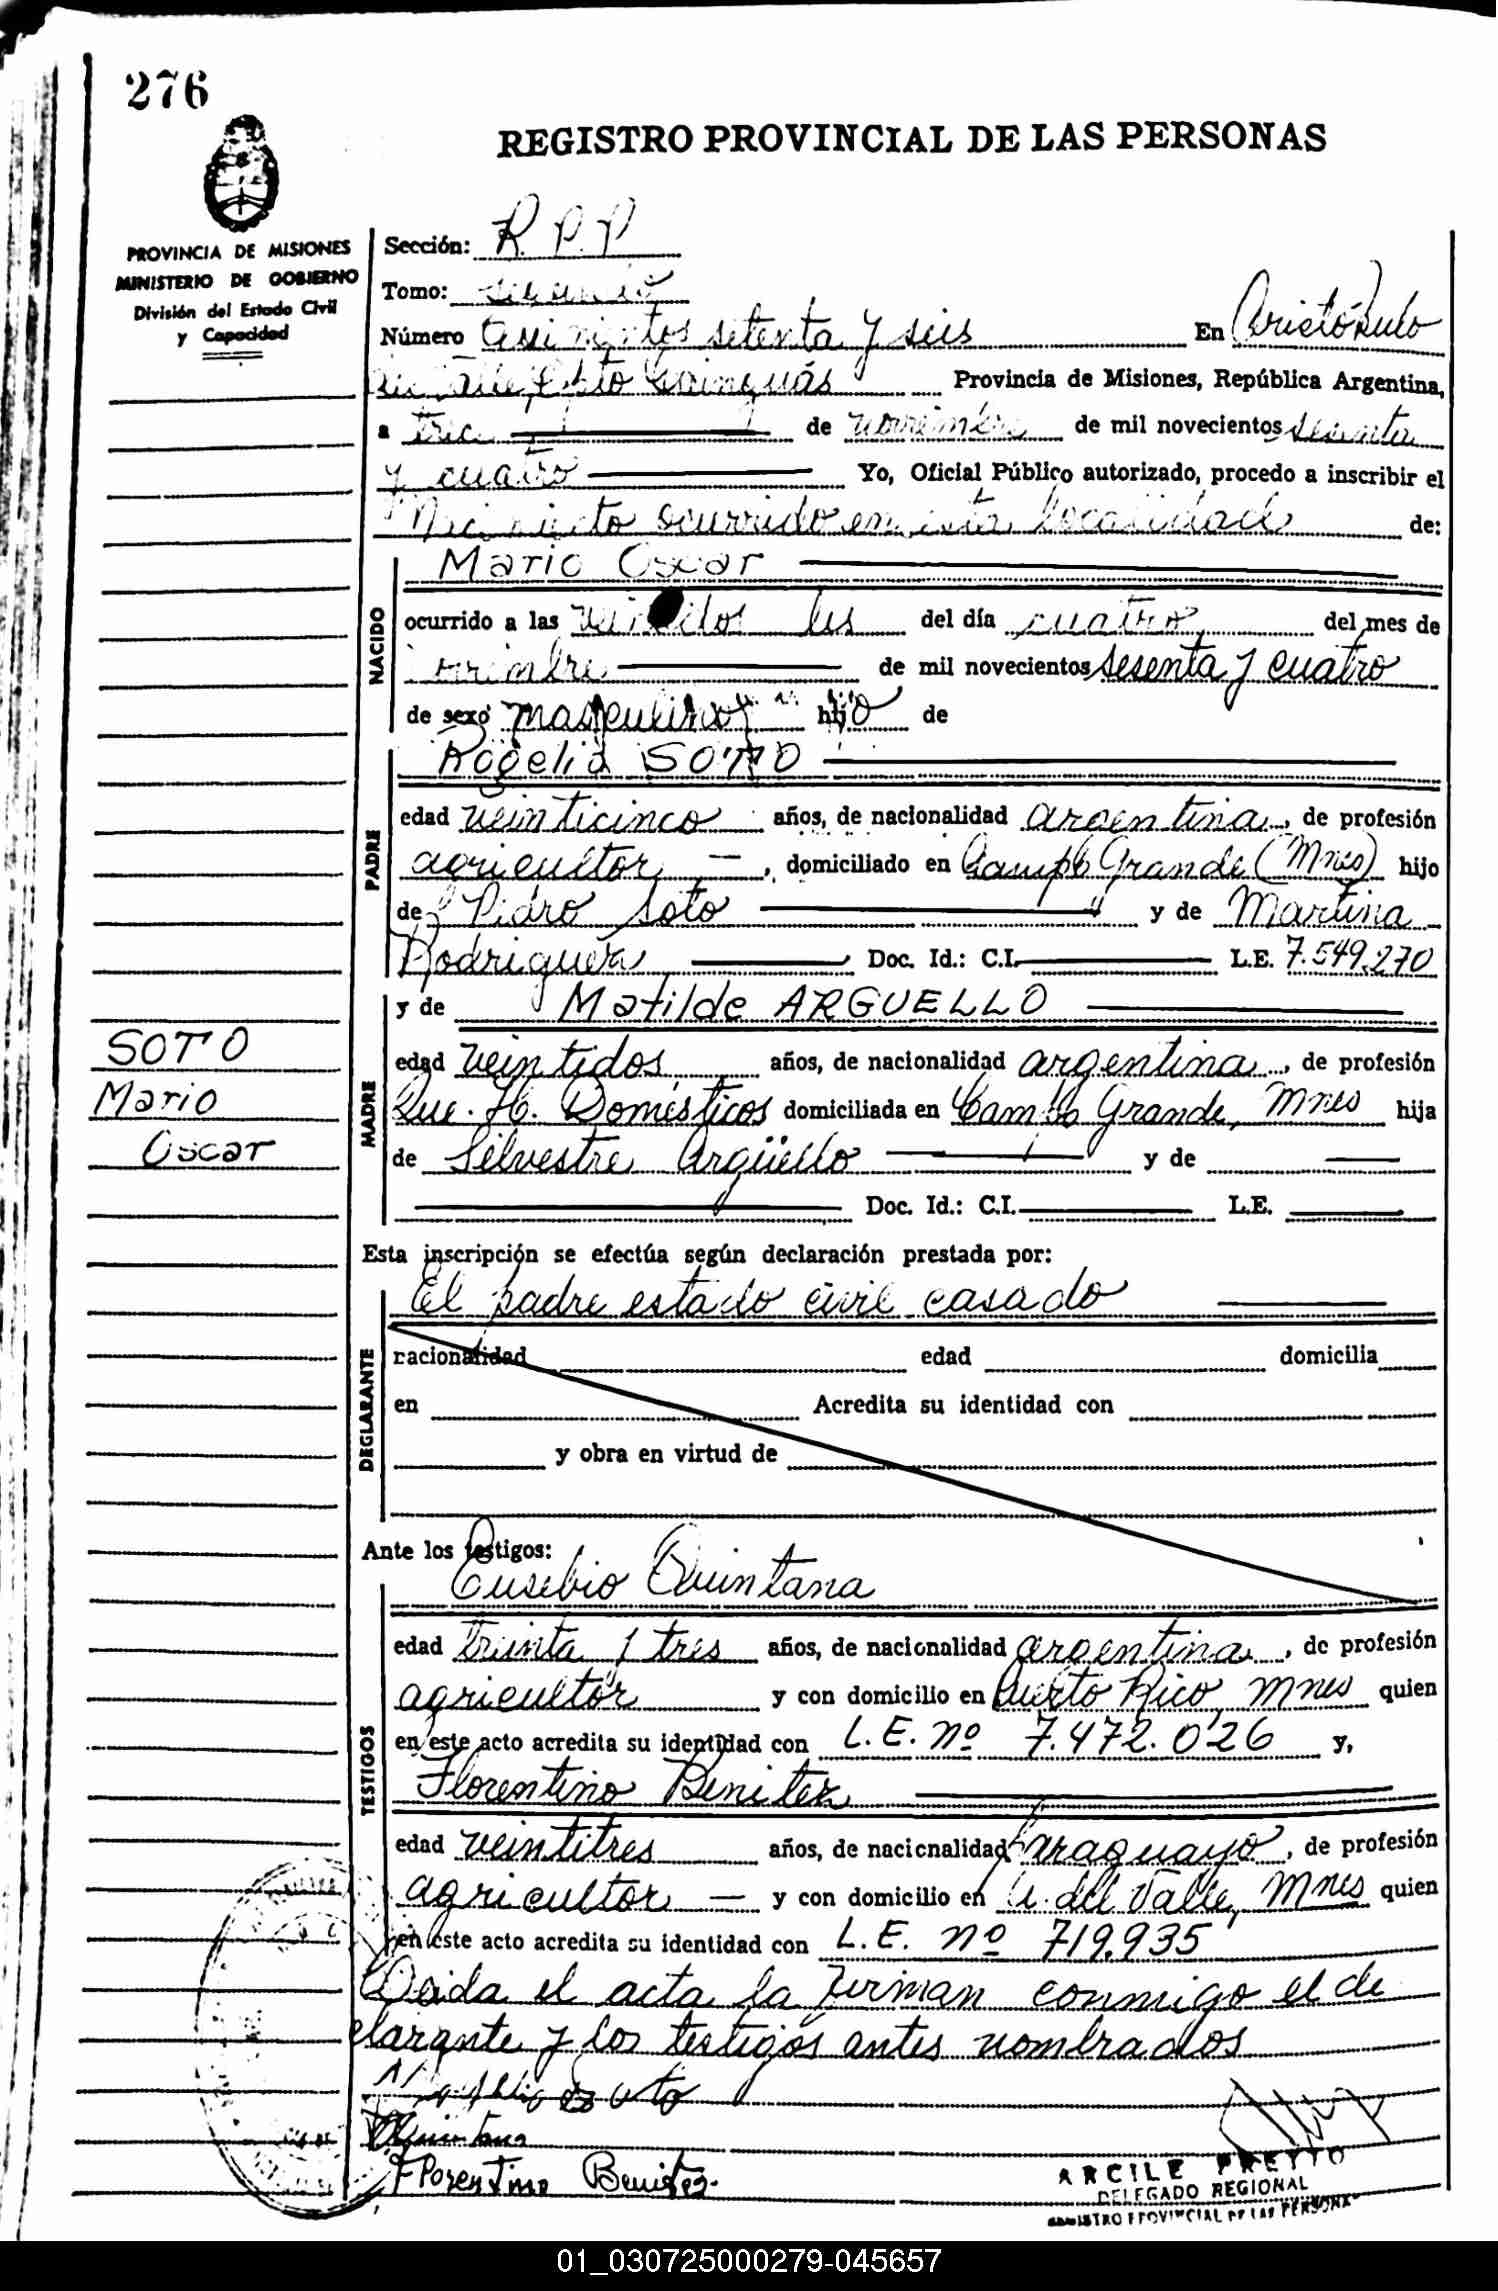 276
REGISTRO PROVINCIAL DE LAS PERSONAS
PROVINCIA DE MISIONES
MINISTERIO DE GOBIERNO
División del Estado Civil
y Capacidad
Sección: R. P. P
Tomo: segundo
Número setenta y seis En Aristóbulo
del Valle, Dpto Cainguás Provincia de Misiones, República Argentina,
a trece de noviembre de mil novecientos sesenta
y cuatro Yo, Oficial Público autorizado, procedo a inscribir el
ocurrido en esta localidad de:
Mario Oscar
NACIDO
ocurrido a las del día cuatro del mes de
noviembre de mil novecientos sesenta y cuatro
de sexo masculino hijo de
Rogelio SOTO
PADRE
edad veinticinco años, de nacionalidad argentina, de profesión
agricultor, domiciliado en Campo Grande (Mnes) hijo
de Pedro Soto y de Martina
Rodriguez Doc. Id.: C.I. L.E. 7.549.270
y de Matilde ARGUELLO
MADRE
edad veintidos años, de nacionalidad argentina, de profesión
Que. H. Domésticos domiciliada en Campo Grande, Mnes hija
de Silvestre Argüello y de
Doc. Id.: C.I. L.E.
SOTO
Mario
Oscar
Esta inscripción se efectúa según declaración prestada por:
El padre estado civil casado
DECLARANTE
nacionalidad edad domicilia
en Acredita su identidad con
y obra en virtud de
Ante los testigos:
Eusebio Quintana
TESTIGOS
edad treinta y tres años, de nacionalidad argentina, de profesión
agricultor y con domicilio en Puerto Rico Mnes quien
en este acto acredita su identidad con L.E. nº 7.472.026 y,
Florentino Benitez
edad veintitres años, de nacionalidad Paraguayo, de profesión
agricultor y con domicilio en A. del Valle, Mnes quien
en este acto acredita su identidad con L.E. nº 719.935
Leida el acta la firman conmigo el de
clarante y los testigos antes nombrados
Soto
Quintana
Florentino Benitez.
ARCILE PREYTO
DELEGADO REGIONAL
REGISTRO PROVINCIAL DE LAS PERSONAS
01_030725000279-045657